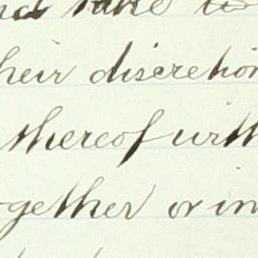 and take to
their discretion
thereof with
together or in